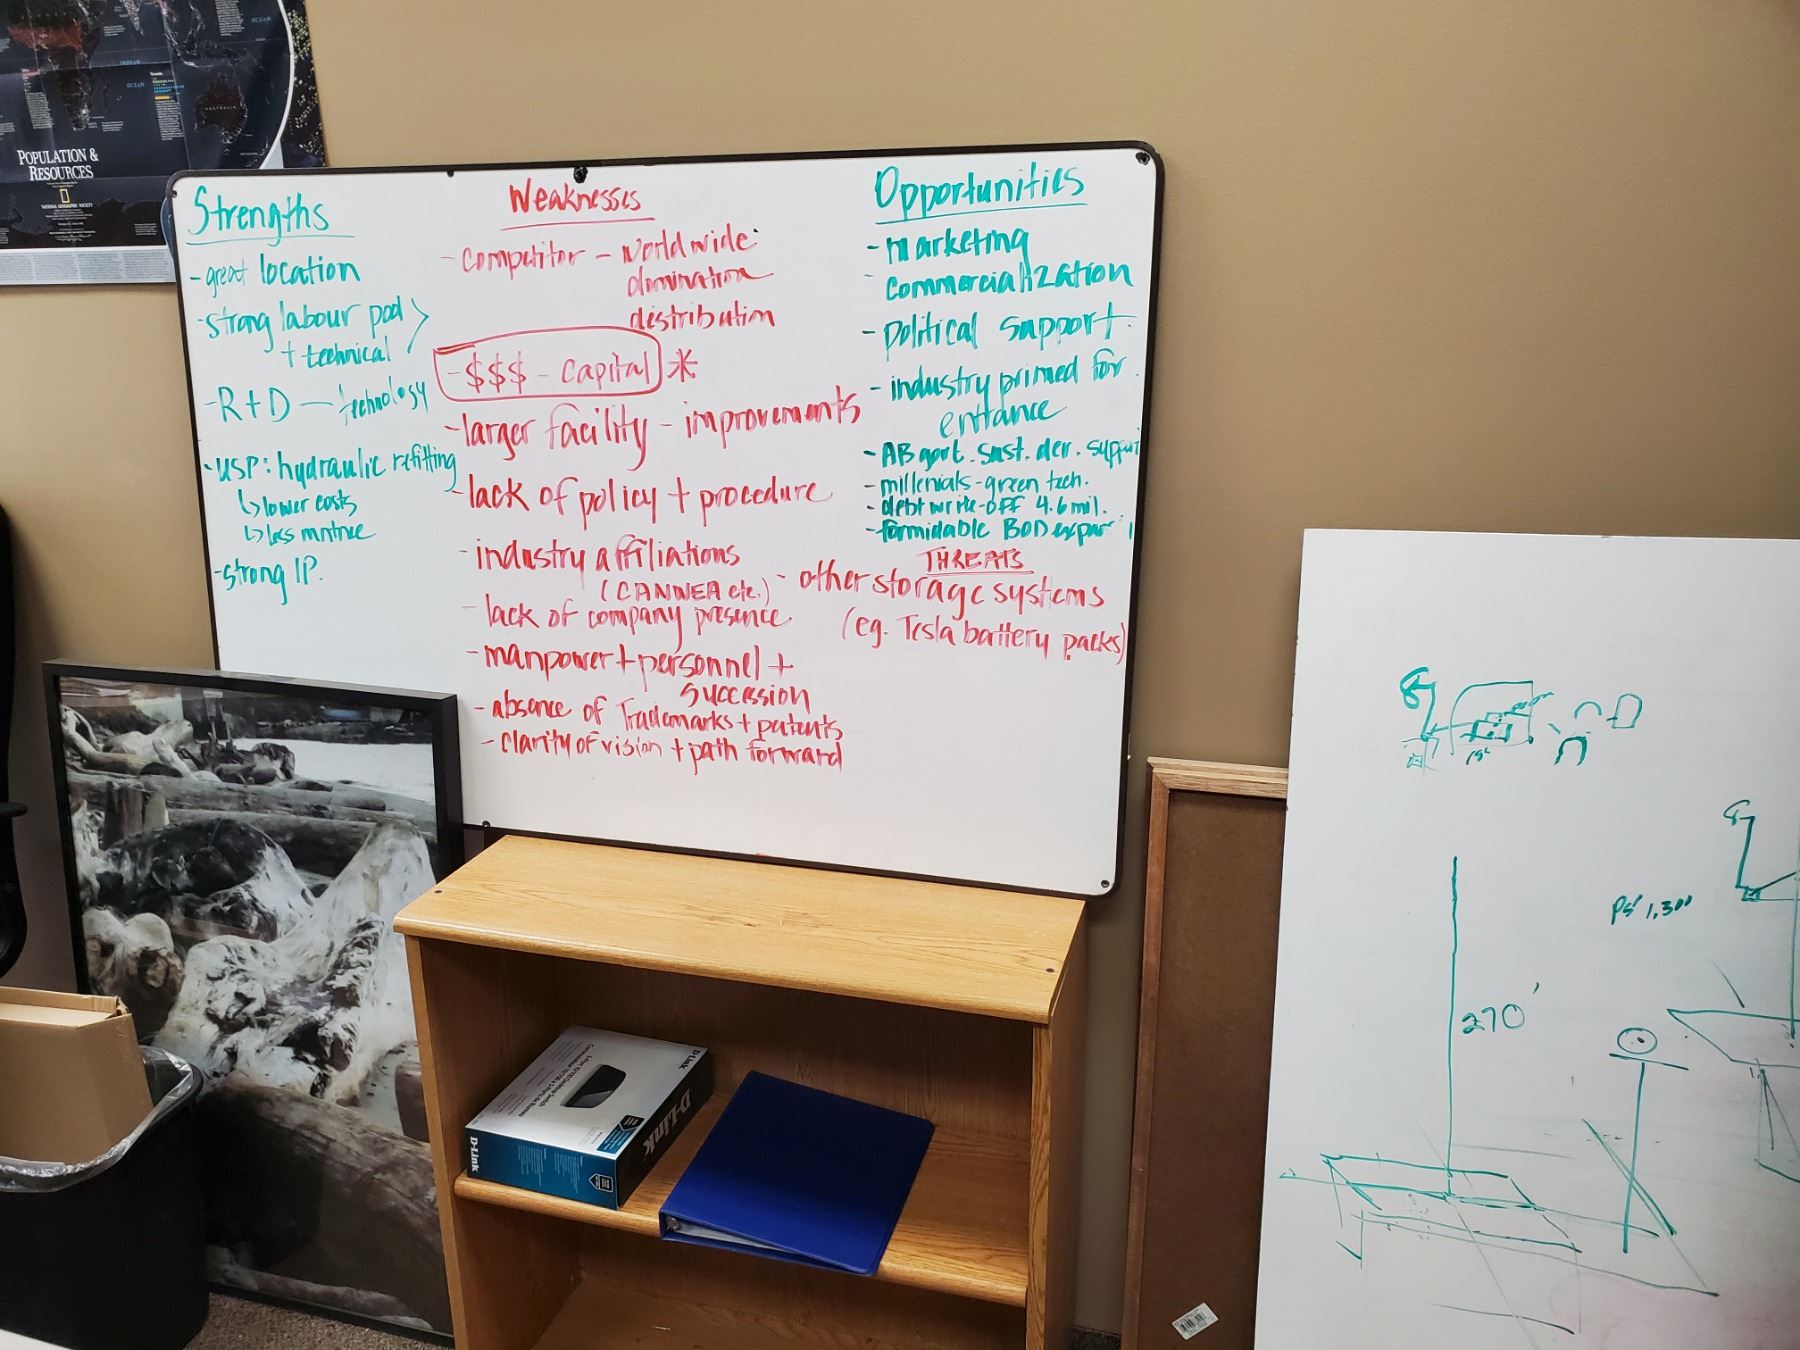 POPULATION &
RESOURCES
NATIONAL GEOGRAPHIC SOCIETY
OCEAN
INDIAN
OCEAN
AUSTRALIA
Strengths
- great location
- strong labour pool
+ technical
- R + D — technology
- USP: hydraulic refitting
↳ lower costs
↳ less mntnce
- strong IP.
Weaknesses
- competitor - worldwide
domination
distribution
- $$$ - capital *
- larger facility - improvements
- lack of policy + procedure
- industry affiliations
(CANWEA etc.)
- lack of company presence
- manpower + personnel +
succession
- absence of Trademarks + patents
- clarity of vision + path forward
Opportunities
- marketing
commercialization
- political support
- industry primed for
entrance
- AB govt. sust. dev. support
- millenials - green tech.
- debt write-off 4.6 mil.
- formidable BOD
THREATS
- other storage systems
(eg. Tesla battery packs)
D-Link
D-Link
D-Link
PSI 1,300
270'